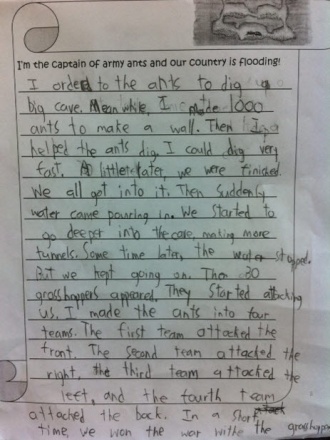 I'm the captain of army ants and our country is flooding!
I ordered to the ants to dig a
big cave. Mean while, I made 1000
ants to make a wall. Then I
helped the ants dig. I could dig very
fast. A little later, we were finished.
We all got into it. Then suddenly
water came pouring in. We started to
go deeper into the cave, making more
tunnels. Some time later, the water stopped.
But we kept going on. Then 30
grasshoppers appeared. They started attacking
us. I made the ants into four
teams. The first team attacked the
front. The second team attacked the
right, the third team attacked the
left, and the fourth team
attacked the back. In a short
time, we won the war withe the grasshoppe